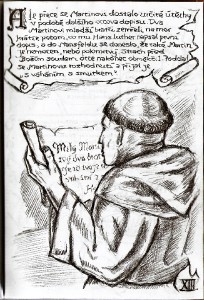 Ale přece se Martinovi dostalo určité útěchy
v podobě dalšího otcova dopisu. Dva
Martinovi mladší bratři zemřeli na mor
krátce potom, co mu Hans Luther napsal první
dopis, a do Mansfeldu se doneslo, že také Martin
je nemocen, nebo pokoušen. Strach před
Božím soudem otce nakonec obměkčil. Podvolil
se Martinovu rozhodnutí a přijal je
"s váháním a smutkem".
Milý Mart
tvoji dva brat
XIII